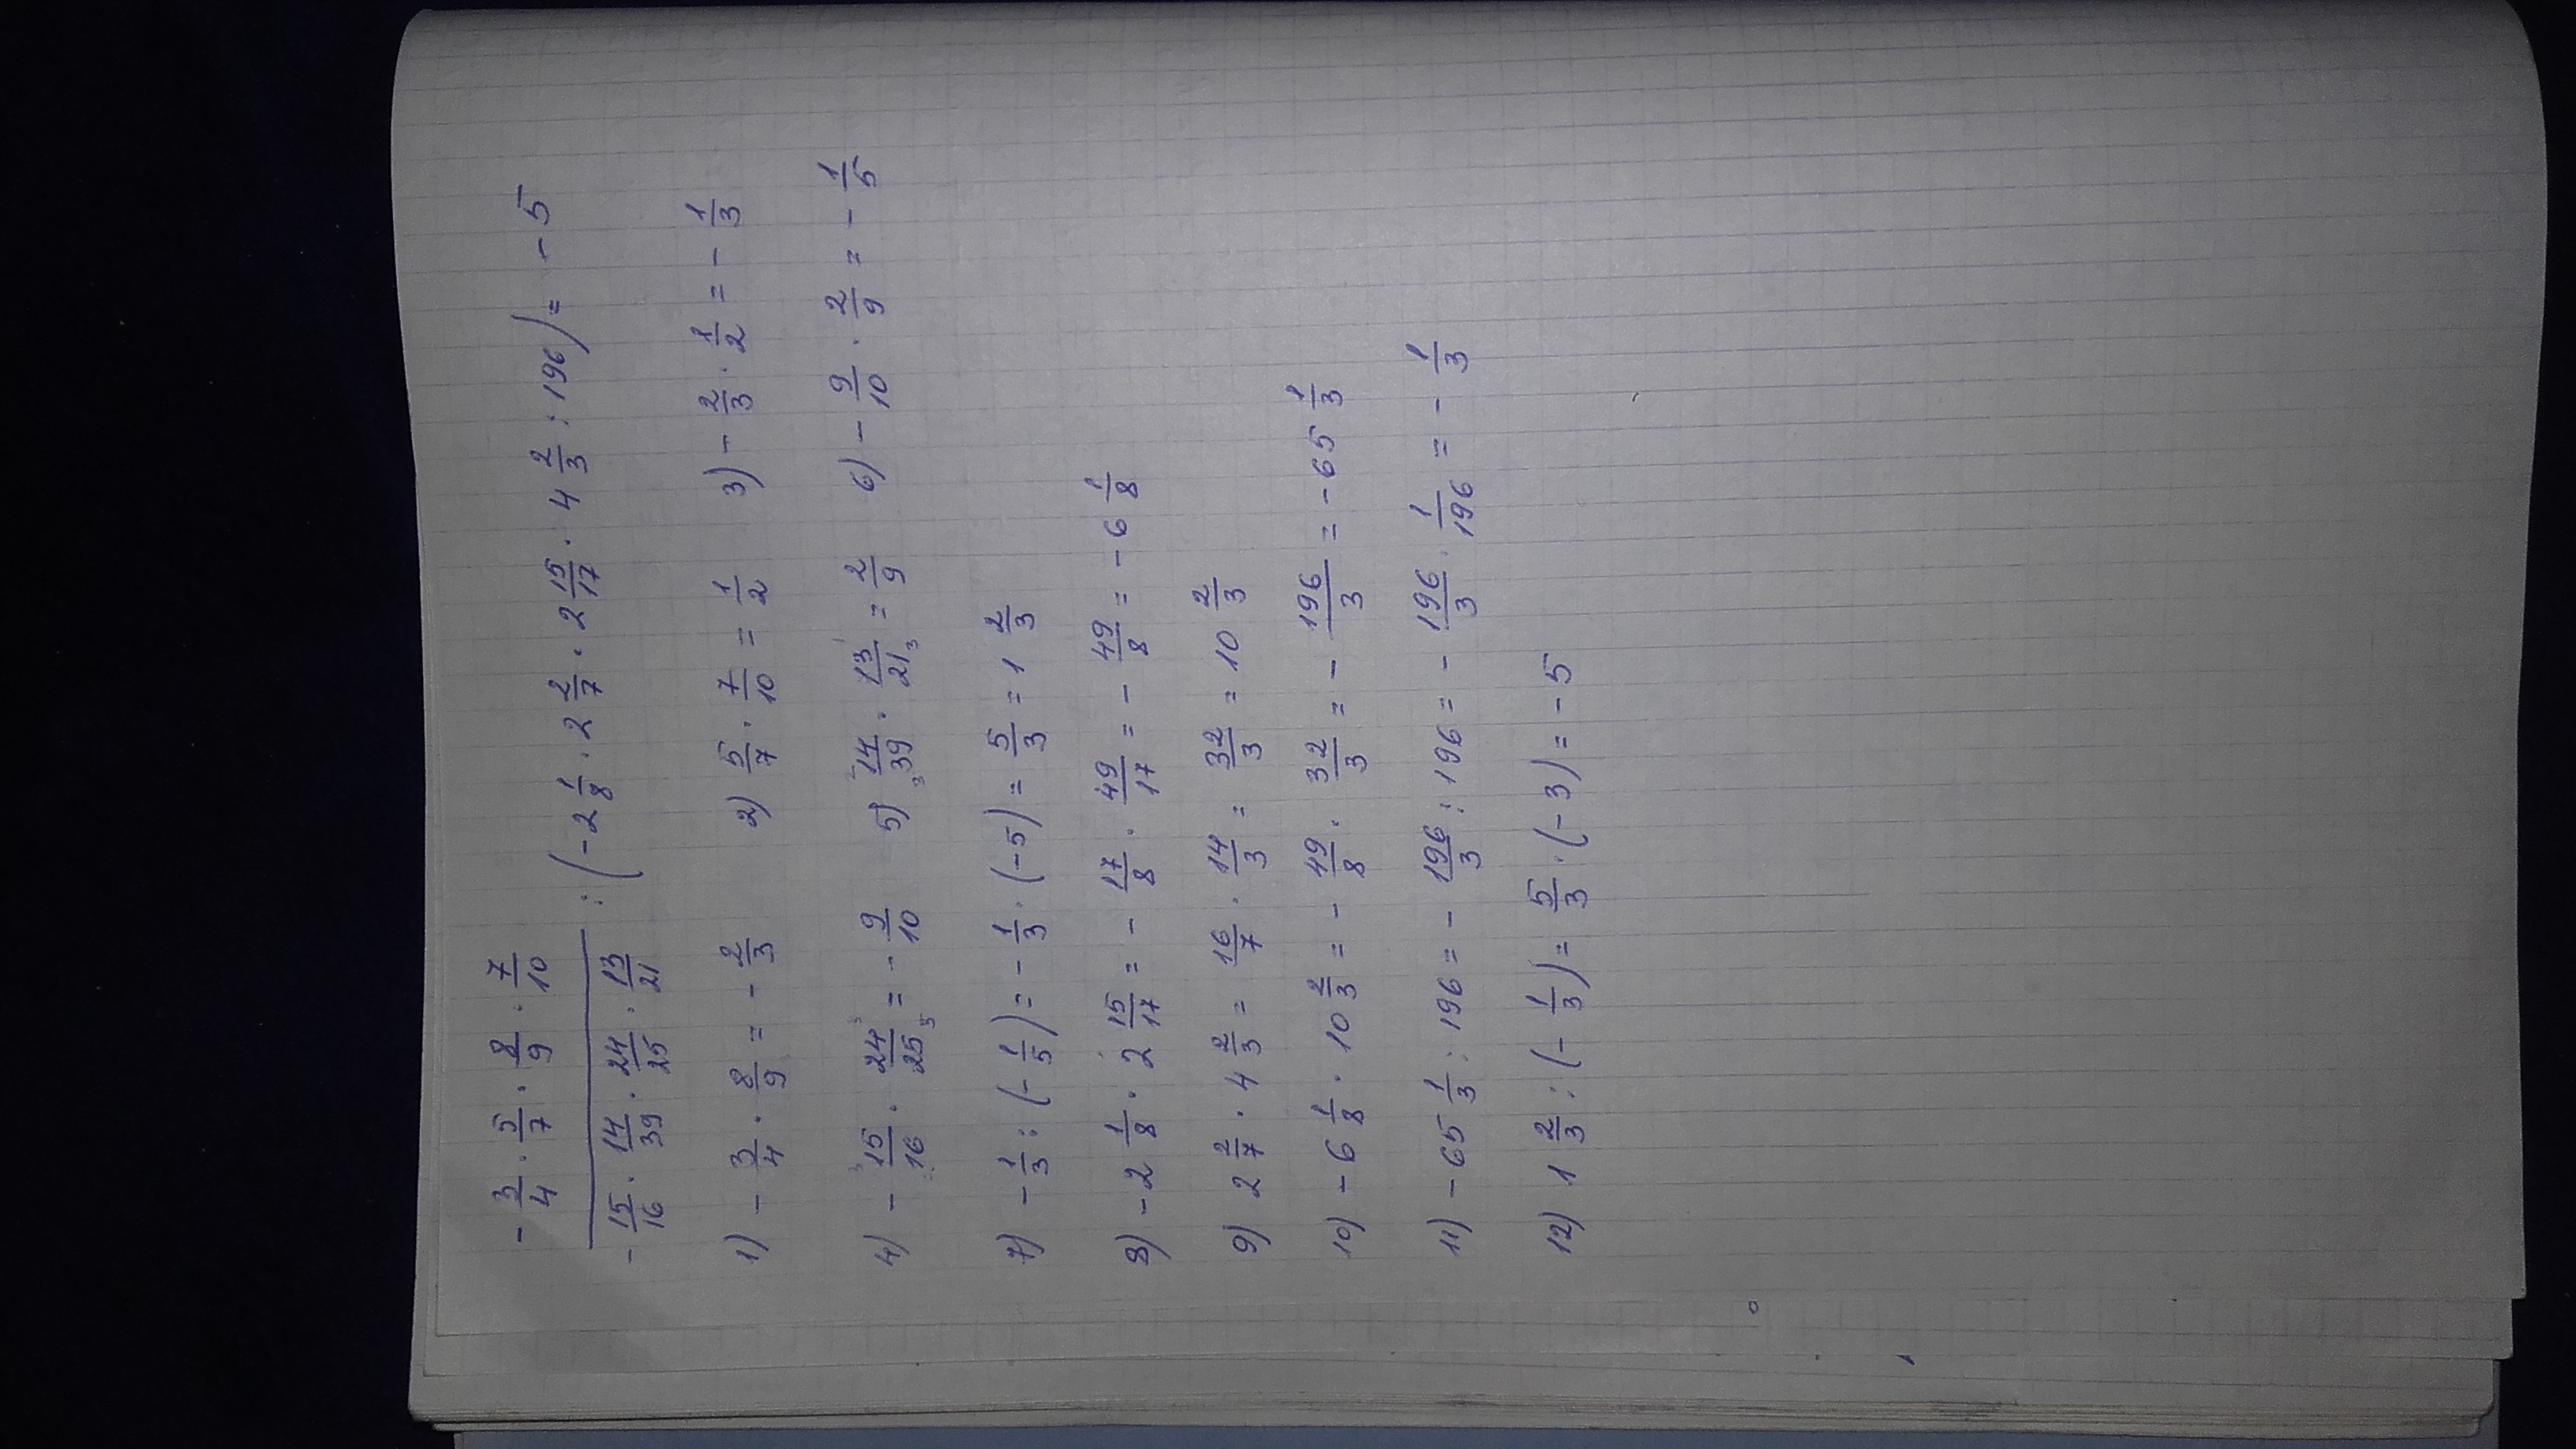 -3/4 · 5/7 · 8/9 · 7/10
-15/16 · 14/39 · 24/25 · 13/21 : (-2 1/8 · 2 2/7 · 2 15/17 · 4 2/3 : 196) = -5
1) -3/4 · 8/9 = -2/3 2) 5/7 · 7/10 = 1/2 3) -2/3 · 1/2 = -1/3
4) -15/16 · 24/25 = -9/10 5) 14/39 · 13/21 = 2/9 6) -9/10 · 2/9 = -1/5
7) -1/3 : (-1/5) = -1/3 · (-5) = 5/3 = 1 2/3
8) -2 1/8 · 2 15/17 = -17/8 · 49/17 = -49/8 = -6 1/8
9) 2 2/7 · 4 2/3 = 16/7 · 14/3 = 32/3 = 10 2/3
10) -6 1/8 · 10 2/3 = -49/8 · 32/3 = -196/3 = -65 1/3
11) -65 1/3 : 196 = -196/3 : 196 = -196/3 · 1/196 = -1/3
12) 1 2/3 : (-1/3) = 5/3 · (-3) = -5